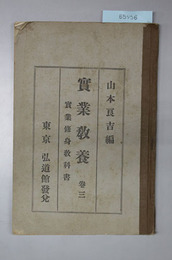 65556
山本良吉編
實業教養 卷三
實業修身教科書
東京 弘道館發兌